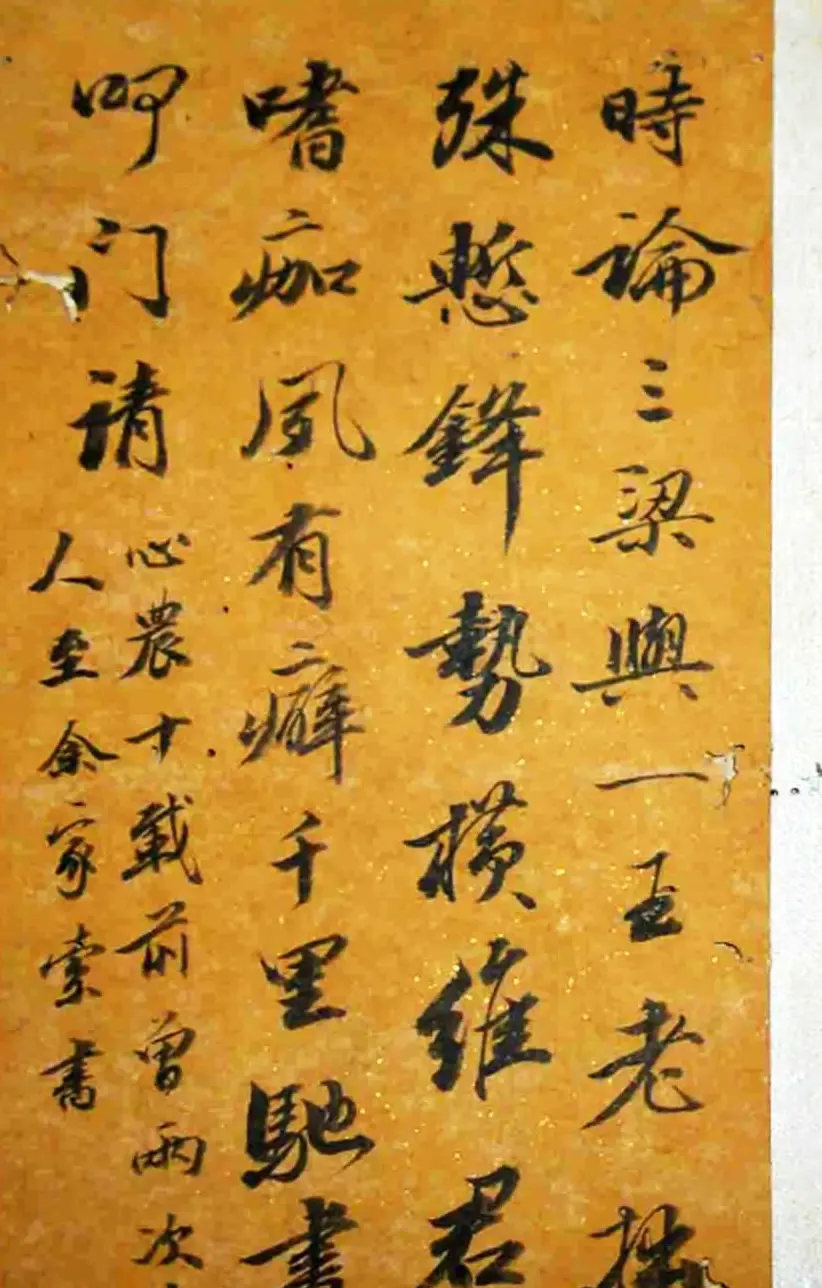 時論三梁與一王老拙
殊慙鋒勢橫維君
嗜痂夙有癖千里馳書
叩门请
心農十載前曾兩次
人至余家索書